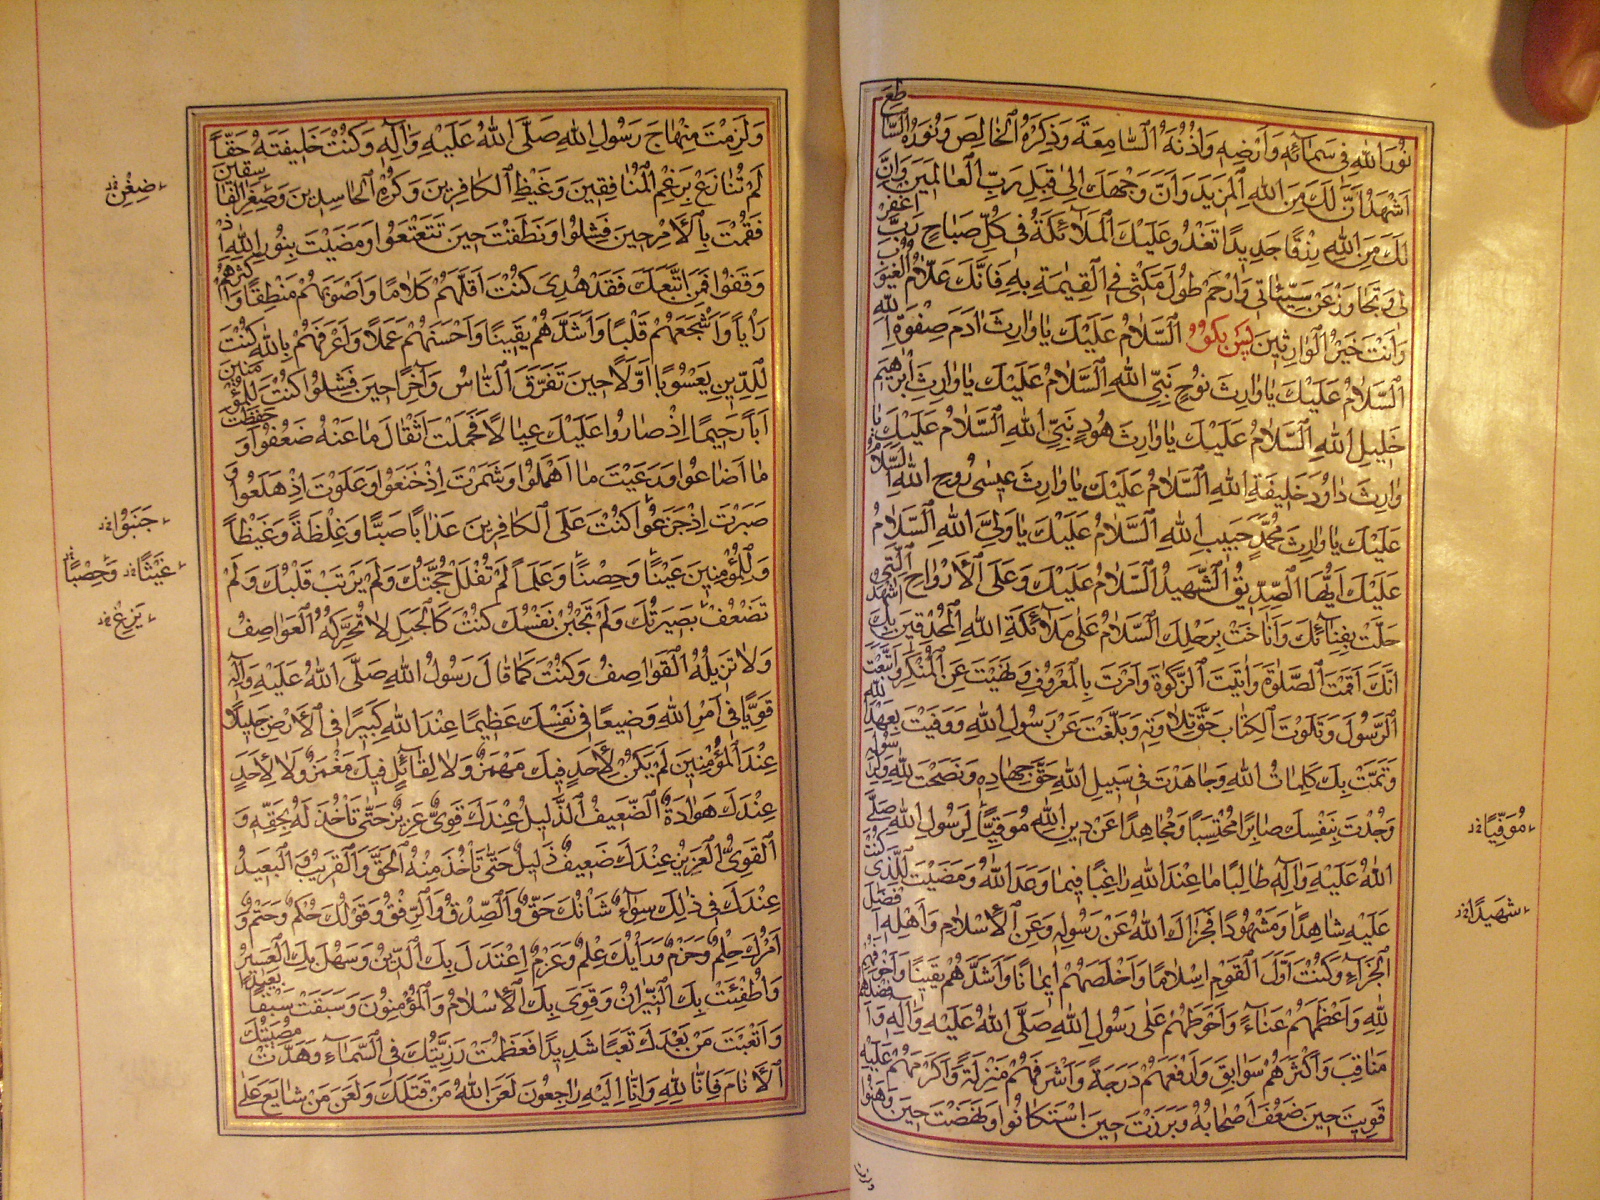 نُورَ اللهِ فِى سَمٰائِهِ وَاَرْضِهِ وَاُذُنَهُ السّٰامِعَةَ وَذِكْرَهُ الْخٰالِصَ وَنُورَهُ السّٰاطِعَ
اَشْهَدُ اَنَّ لَكَ مِنَ اللهِ الْمَزِيدَ وَاَنَّ وَجْهَكَ اِلىٰ قِبَلِ رَبِّ الْعٰالَمِينَ وَاَنَّ
لَكَ مِنَ اللهِ رِزْقًا جَدِيدًا تَغْدُو عَلَيْكَ الْمَلٰائِكَةُ فِى كُلِّ صَبٰاحٍ رَبِّ اغْفِرْ
لِى وَتَجٰاوَزْ عَنْ سَيِّئٰاتِى وَارْحَمْ طُولَ مَكْثِى فِى الْقِيٰمَةِ بِهِ فَاِنَّكَ عَلّٰامُ الْغُيُوبِ
وَاَنْتَ خَيْرُ الْوٰارِثِينَ پس بكو اَلسَّلٰامُ عَلَيْكَ يٰا وٰارِثَ اٰدَمَ صِفْوَةِ اللهِ
اَلسَّلٰامُ عَلَيْكَ يٰا وٰارِثَ نُوحٍ نَبِىِّ اللهِ اَلسَّلٰامُ عَلَيْكَ يٰا وٰارِثَ اِبْرٰهِيمَ
خَلِيلِ اللهِ اَلسَّلٰامُ عَلَيْكَ يٰا وٰارِثَ هُودٍ نَبِىِّ اللهِ اَلسَّلٰامُ عَلَيْكَ يٰا
وٰارِثَ دٰاوُدَ خَلِيفَةِ اللهِ اَلسَّلٰامُ عَلَيْكَ يٰا وٰارِثَ عِيسٰى رُوحِ اللهِ اَلسَّلٰامُ
عَلَيْكَ يٰا وٰارِثَ مُحَمَّدٍ حَبِيبِ اللهِ اَلسَّلٰامُ عَلَيْكَ يٰا وَلِىَّ اللهِ اَلسَّلٰامُ
عَلَيْكَ اَيُّهَا الصِّدِّيقُ الشَّهِيدُ اَلسَّلٰامُ عَلَيْكَ وَعَلَى الْاَرْوٰاحِ الَّتِى
حَلَّتْ بِفِنٰائِكَ وَاَنٰاخَتْ بِرَحْلِكَ اَلسَّلٰامُ عَلىٰ مَلٰائِكَةِ اللهِ الْمُحْدِقِينَ بِكَ اَشْهَدُ
اَنَّكَ اَقَمْتَ الصَّلٰوةَ وَاٰتَيْتَ الزَّكٰوةَ وَاَمَرْتَ بِالْمَعْرُوفِ وَنَهَيْتَ عَنِ الْمُنْكَرِ وَاتَّبَعْتَ
الرَّسُولَ وَتَلَوْتَ الْكِتٰابَ حَقَّ تِلٰاوَتِهِ وَبَلَّغْتَ عَنْ رَسُولِ اللهِ وَوَفَيْتَ بِعَهْدِ اللهِ
وَتَمَّتْ بِكَ كَلِمٰاتُ اللهِ وَجٰاهَدْتَ فِى سَبِيلِ اللهِ حَقَّ جِهٰادِهِ وَنَصَحْتَ لِلّٰهِ وَلِرَسُولِهِ
وَجُدْتَ بِنَفْسِكَ صٰابِرًا مُحْتَسِبًا وَمُجٰاهِدًا عَنْ دِينِ اللهِ مُوَقِّيًا لِرَسُولِ اللهِ صَلَّى
مُوقِيًا
اللهُ عَلَيْهِ وَاٰلِهِ طٰالِبًا مٰا عِنْدَ اللهِ رٰاغِبًا فِيمٰا وَعَدَ اللهُ وَمَضَيْتَ لِلَّذِى كُنْتَ
عَلَيْهِ شٰاهِدًا وَمَشْهُودًا فَجَزٰاكَ اللهُ عَنْ رَسُولِهِ وَعَنِ الْاِسْلٰامِ وَاَهْلِهِ اَفْضَلَ
شَهِيدًا
الْجَزٰاءِ وَكُنْتَ اَوَّلَ الْقَوْمِ اِسْلٰامًا وَاَخْلَصَهُمْ اِيمٰانًا وَاَشَدَّهُمْ يَقِينًا وَاَخْوَفَهُمْ
لِلّٰهِ وَاَعْظَمَهُمْ عَنٰاءً وَاَحْوَطَهُمْ عَلىٰ رَسُولِ اللهِ صَلَّى اللهُ عَلَيْهِ وَاٰلِهِ وَاَفْضَلَهُمْ
مَنٰاقِبَ وَاَكْثَرَهُمْ سَوٰابِقَ وَاَرْفَعَهُمْ دَرَجَةً وَاَشْرَفَهُمْ مَنْزِلَةً وَاَكْرَمَهُمْ عَلَيْهِ
قَوِيتَ حِينَ ضَعُفَ اَصْحٰابُهُ وَبَرَزْتَ حِينَ اسْتَكٰانُوا وَنَهَضْتَ حِينَ وَهَنُوا
وَلَزِمْتَ مِنْهٰاجَ رَسُولِ اللهِ صَلَّى اللهُ عَلَيْهِ وَاٰلِهِ وَكُنْتَ خَلِيفَتَهُ حَقًّا
لَمْ تُنٰازَعْ بِرَغْمِ الْمُنٰافِقِينَ وَغَيْظِ الْكٰافِرِينَ وَكُرْهِ الْحٰاسِدِينَ وَصِغَرِ الْفٰاسِقِينَ
ضِغْنِ
فَقُمْتَ بِالْاَمْرِ حِينَ فَشِلُوا وَنَطَقْتَ حِينَ تَتَعْتَعُوا وَمَضَيْتَ بِنُورِ اللهِ اِذْ
وَقَفُوا فَمَنِ اتَّبَعَكَ فَقَدْ هُدِىَ كُنْتَ اَقَلَّهُمْ كَلٰامًا وَاَصْوَبَهُمْ مَنْطِقًا وَاَكْثَرَهُمْ
رَاْيًا وَاَشْجَعَهُمْ قَلْبًا وَاَشَدَّهُمْ يَقِينًا وَاَحْسَنَهُمْ عَمَلًا وَاَعْرَفَهُمْ بِاللهِ كُنْتَ
لِلدِّينِ يَعْسُوبًا اَوَّلًا حِينَ تَفَرَّقَ النّٰاسُ وَاٰخِرًا حِينَ فَشِلُوا كُنْتَ لِلْمُؤْمِنِينَ
اَبًا رَحِيمًا اِذْ صٰارُوا عَلَيْكَ عِيٰالًا فَحَمَلْتَ اَثْقٰالَ مٰا عَنْهُ ضَعُفُوا وَحَفِظْتَ
مٰا اَضٰاعُوا وَرَعَيْتَ مٰا اَهْمَلُوا وَشَمَّرْتَ اِذْ خَنَعُوا وَعَلَوْتَ اِذْ هَلَعُوا وَ
جَبَنُوا
صَبَرْتَ اِذْ جَزِعُوا كُنْتَ عَلَى الْكٰافِرِينَ عَذٰابًا صَبًّا وَغِلْظَةً وَغَيْظًا
وَلِلْمُؤْمِنِينَ غَيْثًا وَحِصْنًا وَعَلَمًا لَمْ تُفْلَلْ حُجَّتُكَ وَلَمْ يَرْتَبْ قَلْبُكَ وَلَمْ
غَيْثًا وَخِصْبًا
تَضْعُفْ بَصِيرَتُكَ وَلَمْ تَجْبُنْ نَفْسُكَ كُنْتَ كَالْجَبَلِ لٰا تُحَرِّكُهُ الْعَوٰاصِفُ
يَزِغْ
وَلٰا تُزِيلُهُ الْقَوٰاصِفُ وَكُنْتَ كَمٰا قٰالَ رَسُولُ اللهِ صَلَّى اللهُ عَلَيْهِ وَاٰلِهِ
قَوِيًّا فِى اَمْرِ اللهِ وَضِيعًا فِى نَفْسِكَ عَظِيمًا عِنْدَ اللهِ كَبِيرًا فِى الْاَرْضِ جَلِيلًا
عِنْدَ الْمُؤْمِنِينَ لَمْ يَكُنْ لِاَحَدٍ فِيكَ مَهْمَزٌ وَلٰا لِقٰائِلٍ فِيكَ مَغْمَزٌ وَلٰا لِاَحَدٍ
عِنْدَكَ هَوٰادَةٌ الضَّعِيفُ الذَّلِيلُ عِنْدَكَ قَوِىٌّ عَزِيزٌ حَتّٰى تَاْخُذَ لَهُ بِحَقِّهِ وَ
الْقَوِىُّ الْعَزِيزُ عِنْدَكَ ضَعِيفٌ ذَلِيلٌ حَتّٰى تَاْخُذَ مِنْهُ الْحَقَّ وَالْقَرِيبُ وَالْبَعِيدُ
عِنْدَكَ فِى ذٰلِكَ سَوٰاءٌ شَاْنُكَ حَقٌّ وَالصِّدْقُ وَالرِّفْقُ وَقَوْلُكَ حُكْمٌ وَحَتْمٌ وَ
اَمْرُكَ حِلْمٌ وَحَزْمٌ وَرَاْيُكَ عِلْمٌ وَعَزْمٌ اِعْتَدَلَ بِكَ الدِّينُ وَسَهُلَ بِكَ الْعَسِيرُ
وَاُطْفِئَتْ بِكَ النِّيرٰانُ وَقَوِىَ بِكَ الْاِسْلٰامُ وَالْمُؤْمِنُونَ وَسَبَقْتَ سَبْقًا بَعِيدًا
وَاَتْعَبْتَ مَنْ بَعْدَكَ تَعَبًا شَدِيدًا فَعَظُمَتْ رَزِيَّتُكَ فِى السَّمٰاءِ وَهَدَّتْ مُصِيبَتُكَ
الْاَنٰامَ فَاِنّٰا لِلّٰهِ وَاِنّٰا اِلَيْهِ رٰاجِعُونَ لَعَنَ اللهُ مَنْ قَتَلَكَ وَلَعَنَ مَنْ شٰايَعَ عَلىٰ